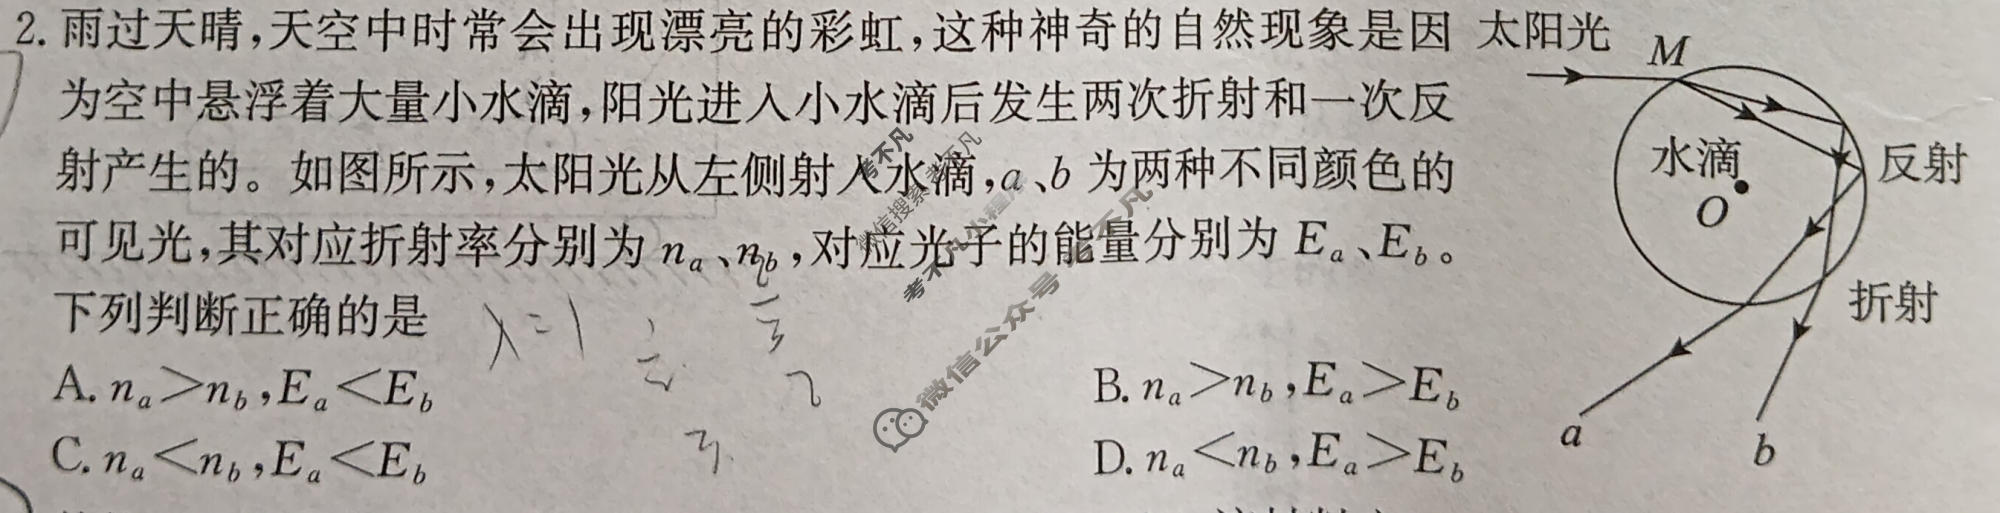 2. 雨过天晴,天空中时常会出现漂亮的彩虹,这种神奇的自然现象是因
为空中悬浮着大量小水滴,阳光进入小水滴后发生两次折射和一次反
射产生的。如图所示,太阳光从左侧射入水滴,a、b 为两种不同颜色的
可见光,其对应折射率分别为 nₐ、n_b,对应光子的能量分别为 Eₐ、E_b。
下列判断正确的是
A. nₐ>n_b,Eₐ<E_b
B. nₐ>n_b,Eₐ>E_b
C. nₐ<n_b,Eₐ<E_b
D. nₐ<n_b,Eₐ>E_b
太阳光
M
水滴
O
反射
折射
a
b
λ=1
考不凡
微信搜索考不凡
考不凡小程序
微信公众号 考不凡